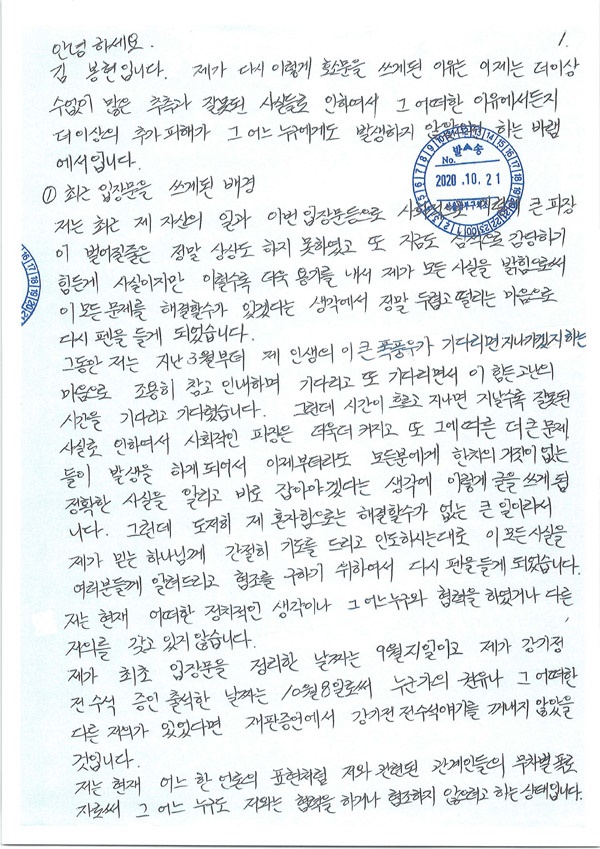 안녕하세요. 1.
김 봉현입니다. 제가 다시 이렇게 호소문을 쓰게된 이유는 이제는 더이상
수없이 많은 추측과 잘못된 사실들로 인하여서 그 어떠한 이유에서든지
더이상의 추가 피해가 그 어느 누구에게도 발생하지 하는 바램
에서 입니다.
발송
No.
2020.10.21
① 최근 입장문을 쓰게된 배경
저는 최근 제 자신의 일과 이번 입장문등으로 큰 파장
이 벌어질줄은 정말 상상도 하지 못하였고 또 지금도 감당하기
힘든게 사실이지만 이럴수록 더욱 용기를 내서 제가 모든 사실을 밝힘으로써
이 모든 문제를 해결할수가 있겠다는 생각에서 정말 두렵고 떨리는 마음으로
다시 펜을 들게 되었습니다.
그동안 저는 지난 3월부터 제 인생의 이 큰 폭풍우가 기다리면 지나가겠지 하는
마음으로 조용히 참고 인내하며 기다리고 또 기다리면서 이 힘든 고난의
시간을 기다리고 기다렸습니다. 그런데 시간이 흐르고 지나면 지날수록 잘못된
사실로 인하여서 사회적인 파장은 더욱더 커지고 또 그에 따른 더 큰 문제
들이 발생을 하게 되어서 이제부터라도 모든분에게 한치의 거짓이 없는
정확한 사실을 알리고 바로 잡아야 겠다는 생각에 이렇게 글을 쓰게 됩
니다. 그런데 도저히 제 혼자힘으로는 해결할수가 없는 큰 일이라서
제가 믿는 하나님께 간절히 기도를 드리고 인도하시는대로 이 모든 사실을
여러분들께 알려드리고 협조를 구하기 위하여서 다시 펜을 들게 되었습니다.
저는 현재 어떠한 정치적인 생각이나 그 어느누구와 협력을 하였거나 다른
저의를 갖고 있지 않습니다.
제가 최초 입장문을 정리한 날짜는 9월 21일이고 제가 강기정
전 수석 증인 출석한 날짜는 10월 8일로써 누군가의 권유나 그 어떠한
다른 저의가 있었다면 재판증언에서 강기정 전수석얘기를 꺼내지 않았을
것입니다.
저는 현재 어느 한 언론의 표현처럼 저와 관련된 관계인들의 무차별 폭로
자로써 그 어느 누구도 저와는 협력을 하거나 협조하지 않으려고 하는 상태입니다.